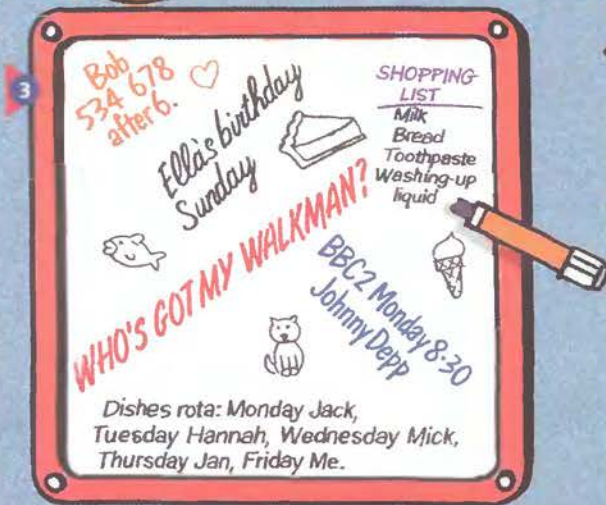 3
Bob
534 678
after 6.
Ella's birthday
Sunday
SHOPPING
LIST
Milk
Bread
Toothpaste
Washing-up
liquid
WHO'S GOT MY WALKMAN?
BBC2 Monday 8.30
Johnny Depp
Dishes rota: Monday Jack,
Tuesday Hannah, Wednesday Mick,
Thursday Jan, Friday Me.